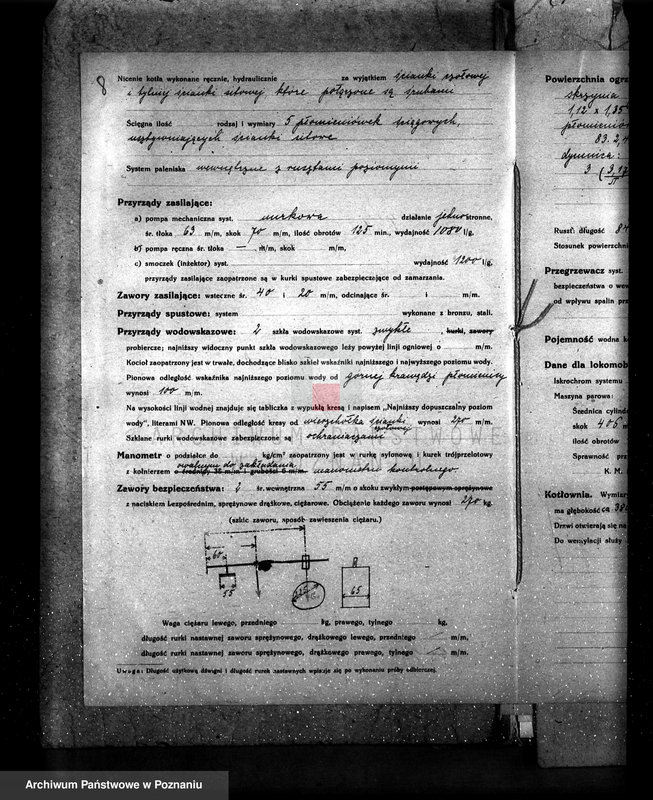 8
Nicenie kotła wykonane ręcznie, hydraulicznie za wyjątkiem ścianki czołowej
i tylnej ścianki sitowej które połączone są śrubami
Ścięgna ilość rodzaj i wymiary 5 płomieniówek ściągowych,
usztywniających ścianki sitowe
System paleniska wewnętrzne z rusztami poziomymi
Przyrządy zasilające:
a) pompa mechaniczna syst. nurkowa działanie jednostronne,
śr. tłoka 63 m/m, skok 70 m/m, ilość obrotów 125 min., wydajność 1080 l/g,
b) pompa ręczna śr. tłoka — m/m, skok m/m,
c) smoczek (inżektor) syst. wydajność 1200 l/g,
przyrządy zasilające zaopatrzone są w kurki spustowe zabezpieczające od zamarzania.
Zawory zasilające: wsteczne śr. 40 i 20 m/m, odcinające śr. i m/m.
Przyrządy spustowe: system wykonane z bronzu, stali.
Przyrządy wodowskazowe: 2 szkła wodowskazowe syst. zwykłe , kurki, zawory
probiercze; najniższy widoczny punkt szkła wodowskazowego leży powyżej linji ogniowej o m/m.
Kocioł zaopatrzony jest w trwałe, dochodzące blisko szkieł wskaźniki najniższego i najwyższego poziomu wody.
Pionowa odległość wskaźnika najniższego poziomu wody od górnej krawędzi płomienicy
wynosi 100 m/m.
Na wysokości linji wodnej znajduje się tabliczka z wypukłą kresą i napisem „Najniższy dopuszczalny poziom
wody", literami NW. Pionowa odległość kresy od wierzchołka ścianki czołowej wynosi 270 m/m.
Szklane rurki wodowskazowe zabezpieczone są ochraniaczami
Manometr o podziałce do kg/cm² zaopatrzony jest w rurkę syfonową i kurek trójprzelotowy
z kołnierzem owalnym do zakładania o średnicy, 35 m/m i grubości 6 m/m. manometru kontrolnego.
Zawory bezpieczeństwa: 1 śr. wewnętrzna 55 m/m o skoku zwykłym postępowym sprężynowe
z naciskiem bezpośrednim, sprężynowe drążkowe, ciężarowe. Obciążenie każdego zaworu wynosi 270 kg.
(szkic zaworu, sposób zawieszenia ciężaru.)
60
55
65
Waga ciężaru lewego, przedniego kg, prawego, tylnego kg,
długość rurki nastawnej zaworu sprężynowego, drążkowego lewego, przedniego m/m,
długość rurki nastawnej zaworu sprężynowego, drążkowego prawego, tylnego m/m.
Uwaga: Długość użytkową dźwigni i długość rurek nastawnych wpisuje się po wykonaniu próby odbiorczej.
Powierzchnia ogrz
skrzynia
1,12 x 1,35
płomienió
83. 2,4
dymnica:
3 (3,17
Ruszt: długość 84
Stosunek powierzchni
Przegrzewacz syst.
bezpieczeństwa o wew
od wpływu spalin prz
Pojemność wodna k
Dane dla lokomob
Iskrochron systemu
Maszyna parowa:
Średnica cylindr
skok 405 m
ilość obrotów
Sprawność prz
K. M.
Kotłownia. Wymiary
ma głębokość ca 380
Drzwi otwierają się na
Do wentylacji służy
ARCHIWUM PAŃSTWOWE
W POZNANIU
Archiwum Państwowe w Poznaniu